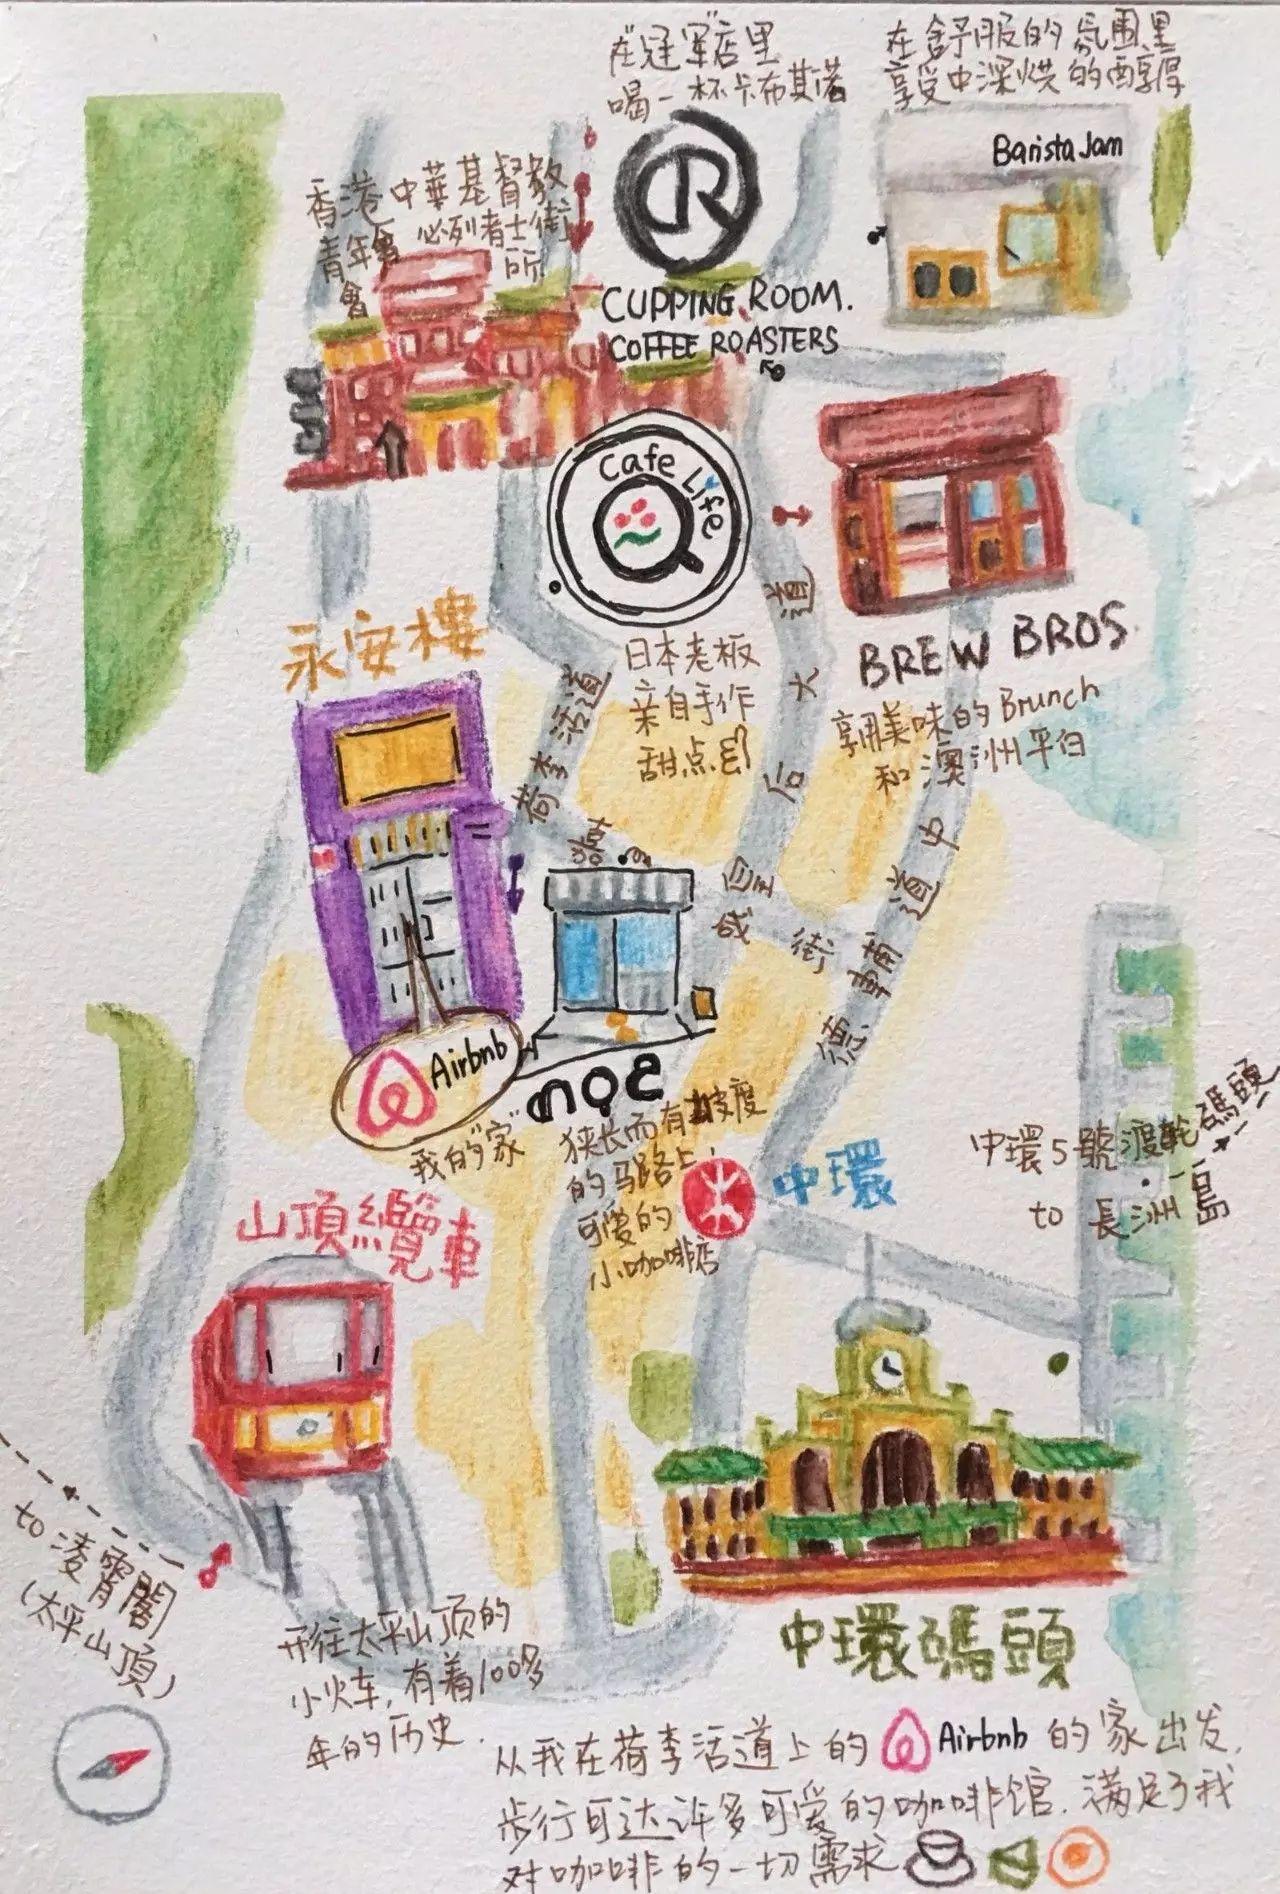 在"冠军"店里
喝一杯卡布其诺
在舒服的氛围里
享受中深烘的醇厚
Barista Jam
香港中華基督教
青年會
必列者士街
會所
CUPPING ROOM.
COFFEE ROASTERS
Cafe Life
永安樓
日本老板
亲自手作
甜点
BREW BROS.
享用美味的Brunch
和澳洲平白
荷李活道
皇后大道
德輔道中
威
街
Airbnb
noc
我的"家"
狭长而有坡度
的马路上,
可爱的
小咖啡店
中環
中環5號渡輪碼頭
to 長洲島
山頂纜車
to 凌霄閣
(太平山頂)
开往太平山顶的
小火车,有着100多
年的历史.
中環碼頭
从我在荷李活道上的 Airbnb 的家出发,
步行可达许多可爱的咖啡馆.满足了我
对咖啡的一切需求